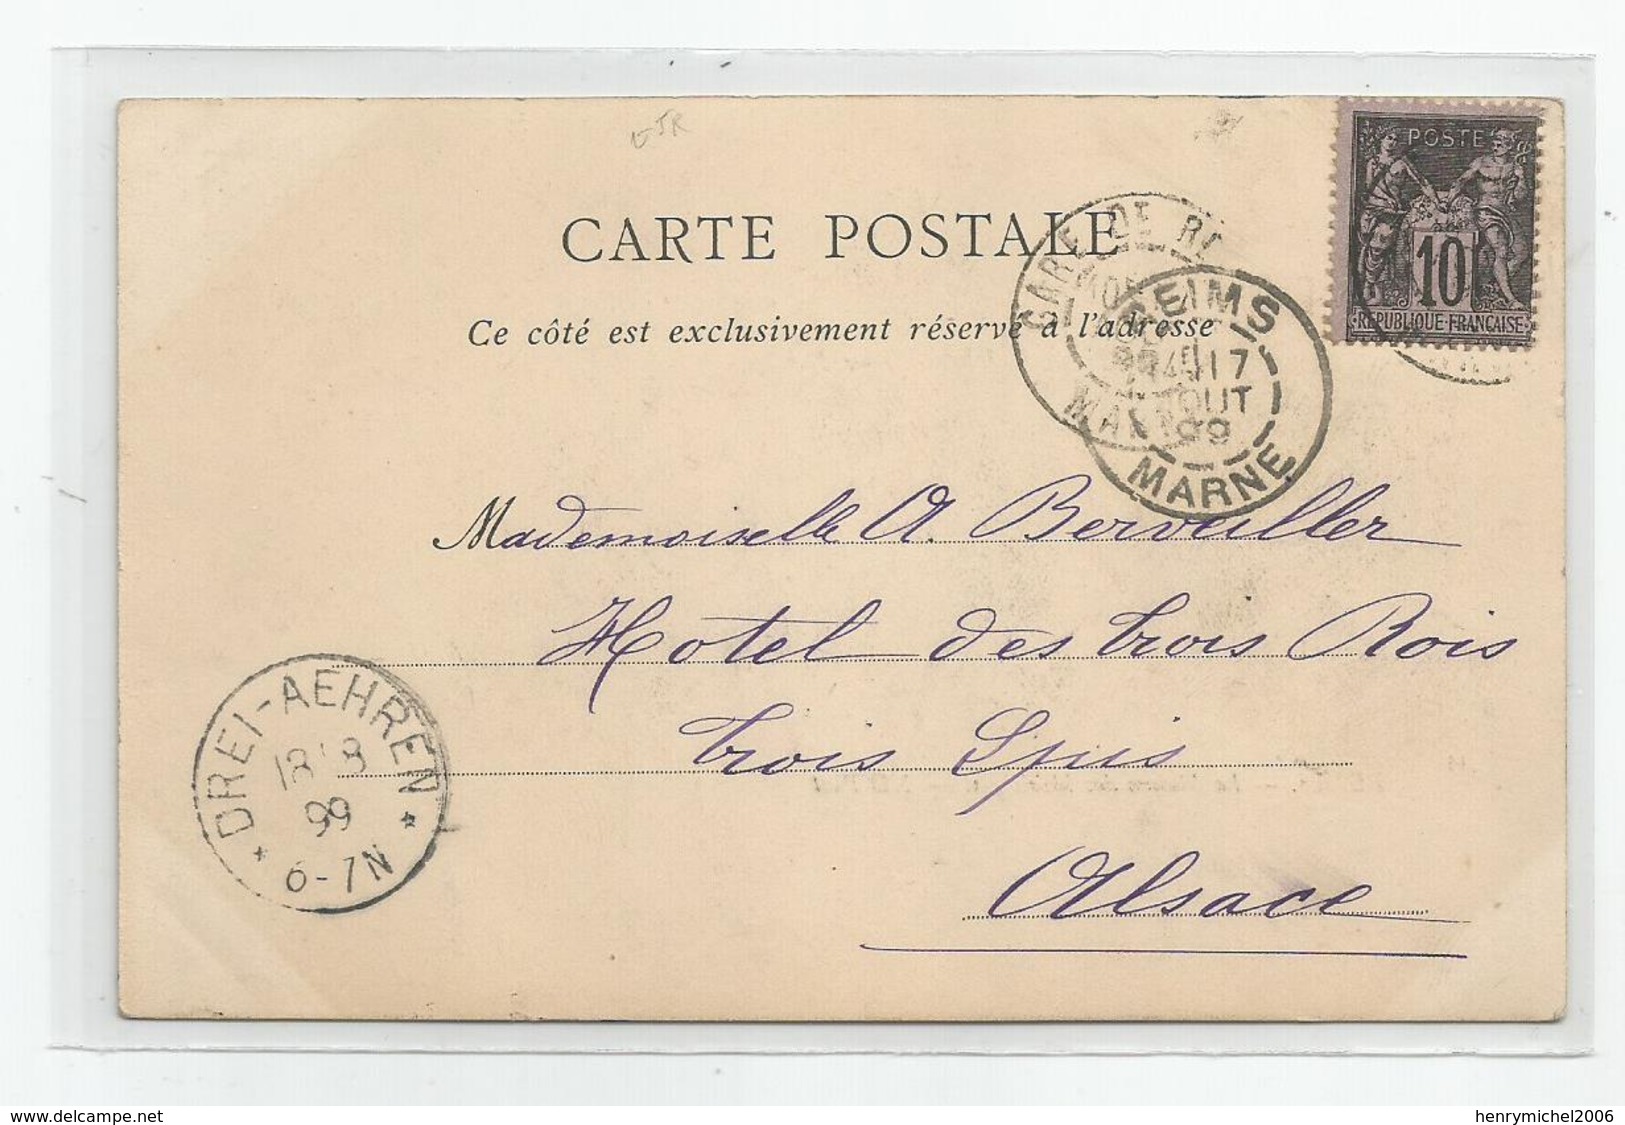 CARTE POSTALE
Ce côté est exclusivement réservé à l'adresse
POSTE
10
REPUBLIQUE FRANÇAISE
GARE DE
MARNE
REIMS
17
AOUT
99
MARNE
Mademoiselle A. Berveiller
Hotel des trois Rois
trois Epis
Alsace
DREI-AEHREN
18 8
99
6-7N
www.delcampe.net
henrymichel2006